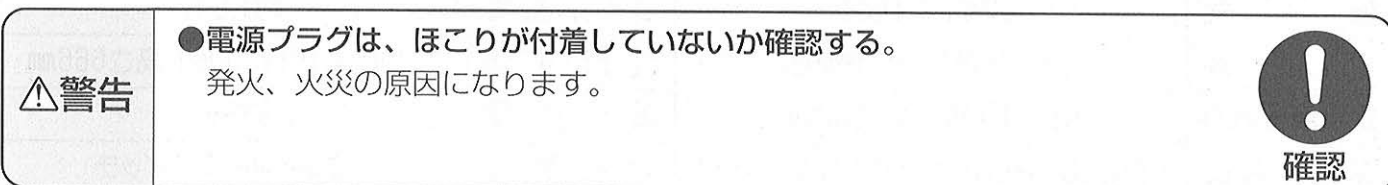 ⚠警告
●電源プラグは、ほこりが付着していないか確認する。
発火、火災の原因になります。
確認